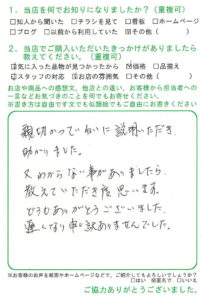 1. 当店を何でお知りになりましたか？（重複可）
□知人から聞いた □チラシを見て □看板 □ホームページ
□ブログ □以前から利用していた □その他（ ）
2. 当店でご購入いただいたきっかけがありましたら
教えてください。（重複可）
□気に入った品物が見つかったから □価格 □品揃え
□スタッフの対応 □お店の雰囲気 □その他（ ）
お店や商品への感想文、他店との違い、お客様から担当者への
一言などお気づきのことを何でもお寄せください。
※書き方は自由です文でも似顔絵でもご自由にお書きください
親切かつていねいに説明いただき
助かりました。
又わからない事がありましたら、
教えていただき度思います。
どうもありがとうございました。
遅くなり申し訳ありませんでした。
※お客様のお声を紙面やホームページなどで、ご紹介してもよろしいでしょうか？
□はい □匿名で □いいえ
ご協力ありがとうございました。